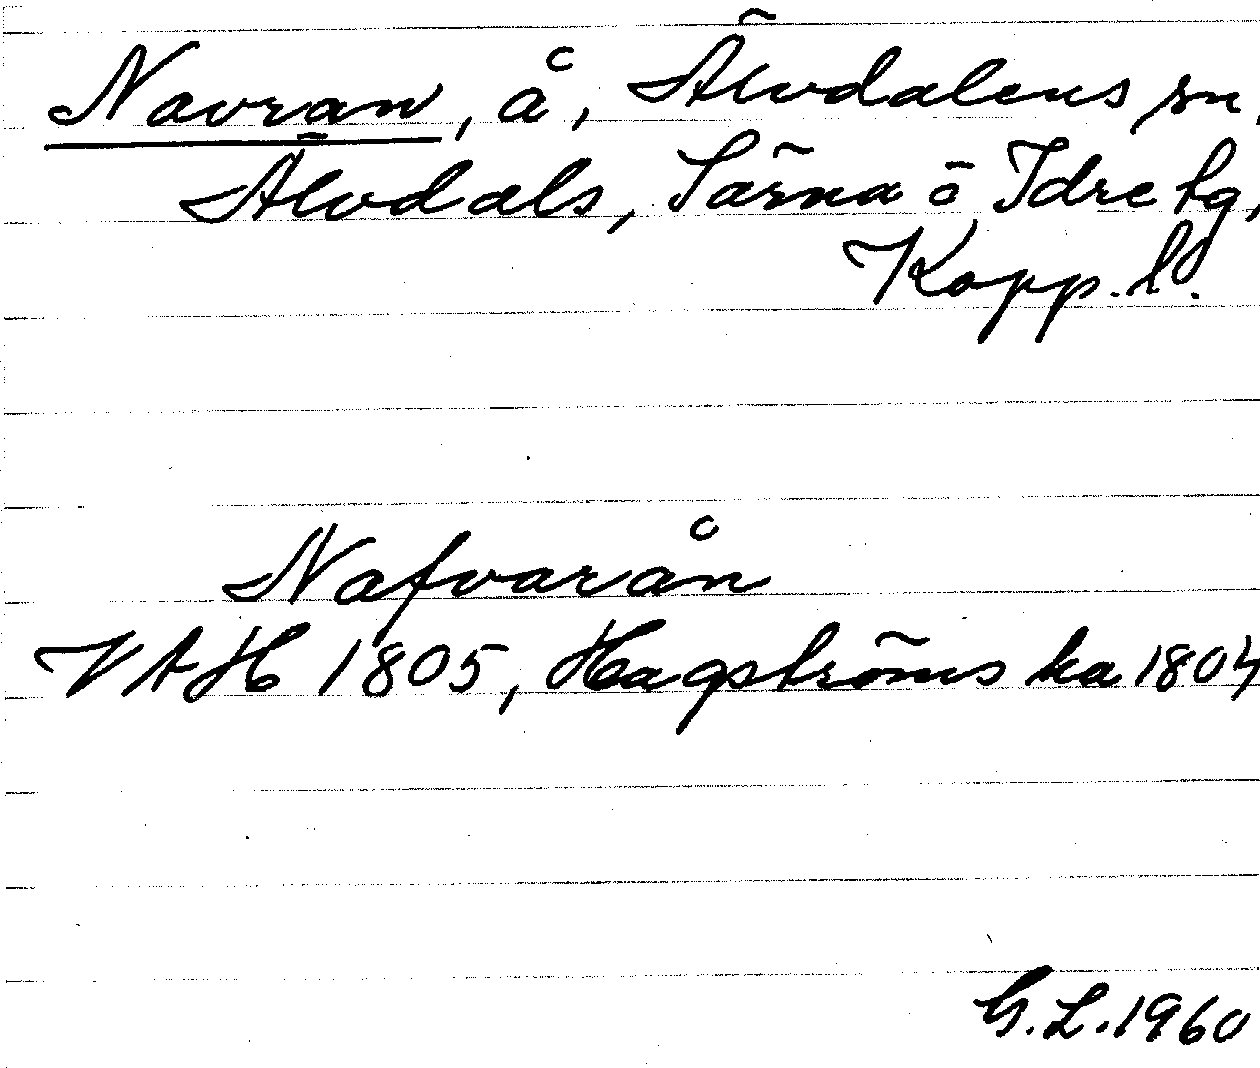 Navran, å, Älvdalens sn,
Älvdals, Särna o Idre tg,
Kopp. l.
Nafvarån
VAH 1805, Hagströms ka 1804
G.L. 1960